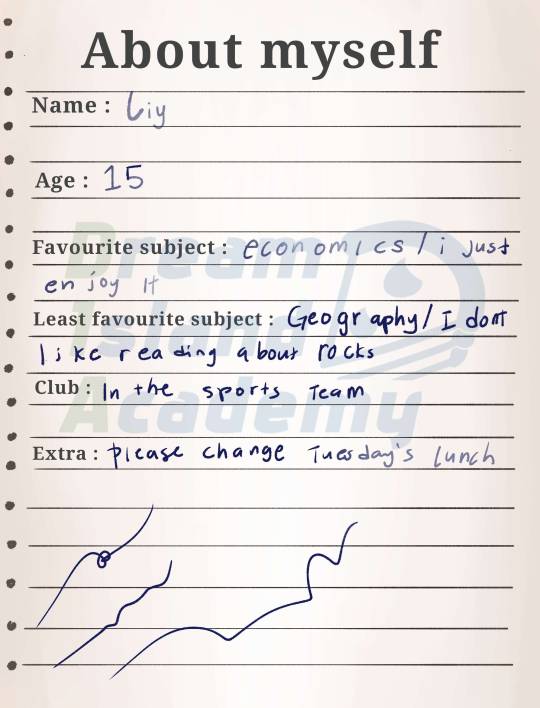 About myself
Name : Liy
Age : 15
Favourite subject : economics / i just
enjoy it
Least favourite subject : Geography / I dont
like reading about rocks
Club : In the sports Team
Extra : please change Tuesday's lunch
Dream
Island
Academy